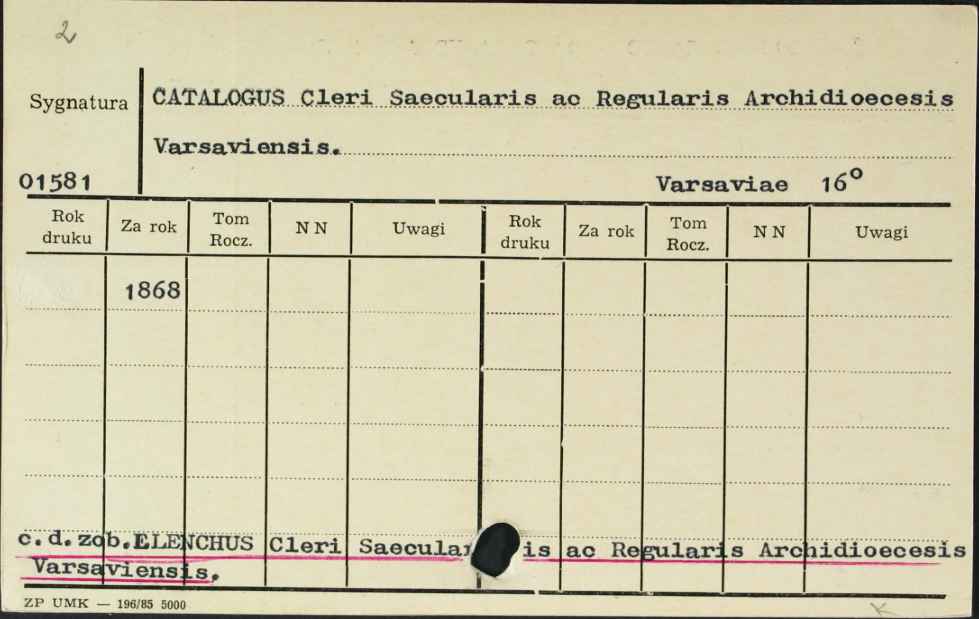 2
Sygnatura CATALOGUS Cleri Saecularis ac Regularis Archidioecesis
Varsaviensis.
01581 Varsaviae 16°
Rok druku Za rok Tom Rocz. N N Uwagi Rok druku Za rok Tom Rocz. N N Uwagi
1868
c.d.zob.ELENCHUS Cleri Saecular is ac Regularis Archidioecesis
Varsaviensis.
ZP UMK — 196/85 5000
K